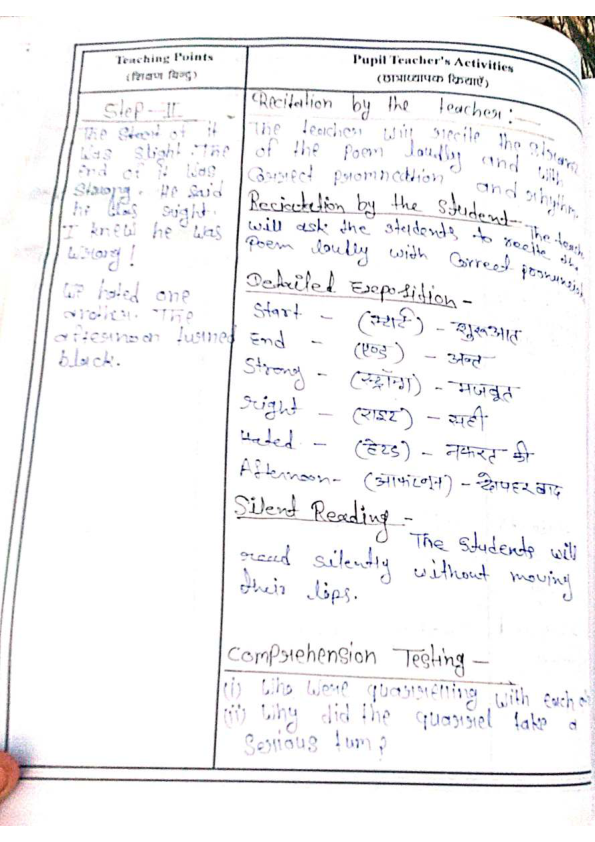 Teaching Points
(शिक्षण बिन्दु)
Step-II
The Start of it
was slight. The
end of it was
Strong. He said
he was right.
I knew he was
wrong!
We hated one
another. The
afternoon turned
black.
Pupil Teacher's Activities
(छात्राध्यापक क्रियाएँ)
Recitation by the teacher:-
The teacher will recite the stanza
of the Poem loudly and with
Correct pronunciation and rhythm.
Recitation by the Student- The teach
will ask the students to recite the
Poem loudly with Correct
Detailed Exposition -
Start - (स्टार्ट) - शुरूआत
End - (एण्ड) - अन्त
Strong - (स्ट्रॉन्ग) - मजबूत
right - (राइट) - सही
Hated - (हेटड) - नफरत की
Afternoon- (आफ्टरनून) - दोपहर बाद
Silent Reading -
The Students will
read silently without moving
their lips.
Comprehension Testing -
(i) Who were quarrelling with each o
(ii) Why did the quarrel take a
Serious turn?